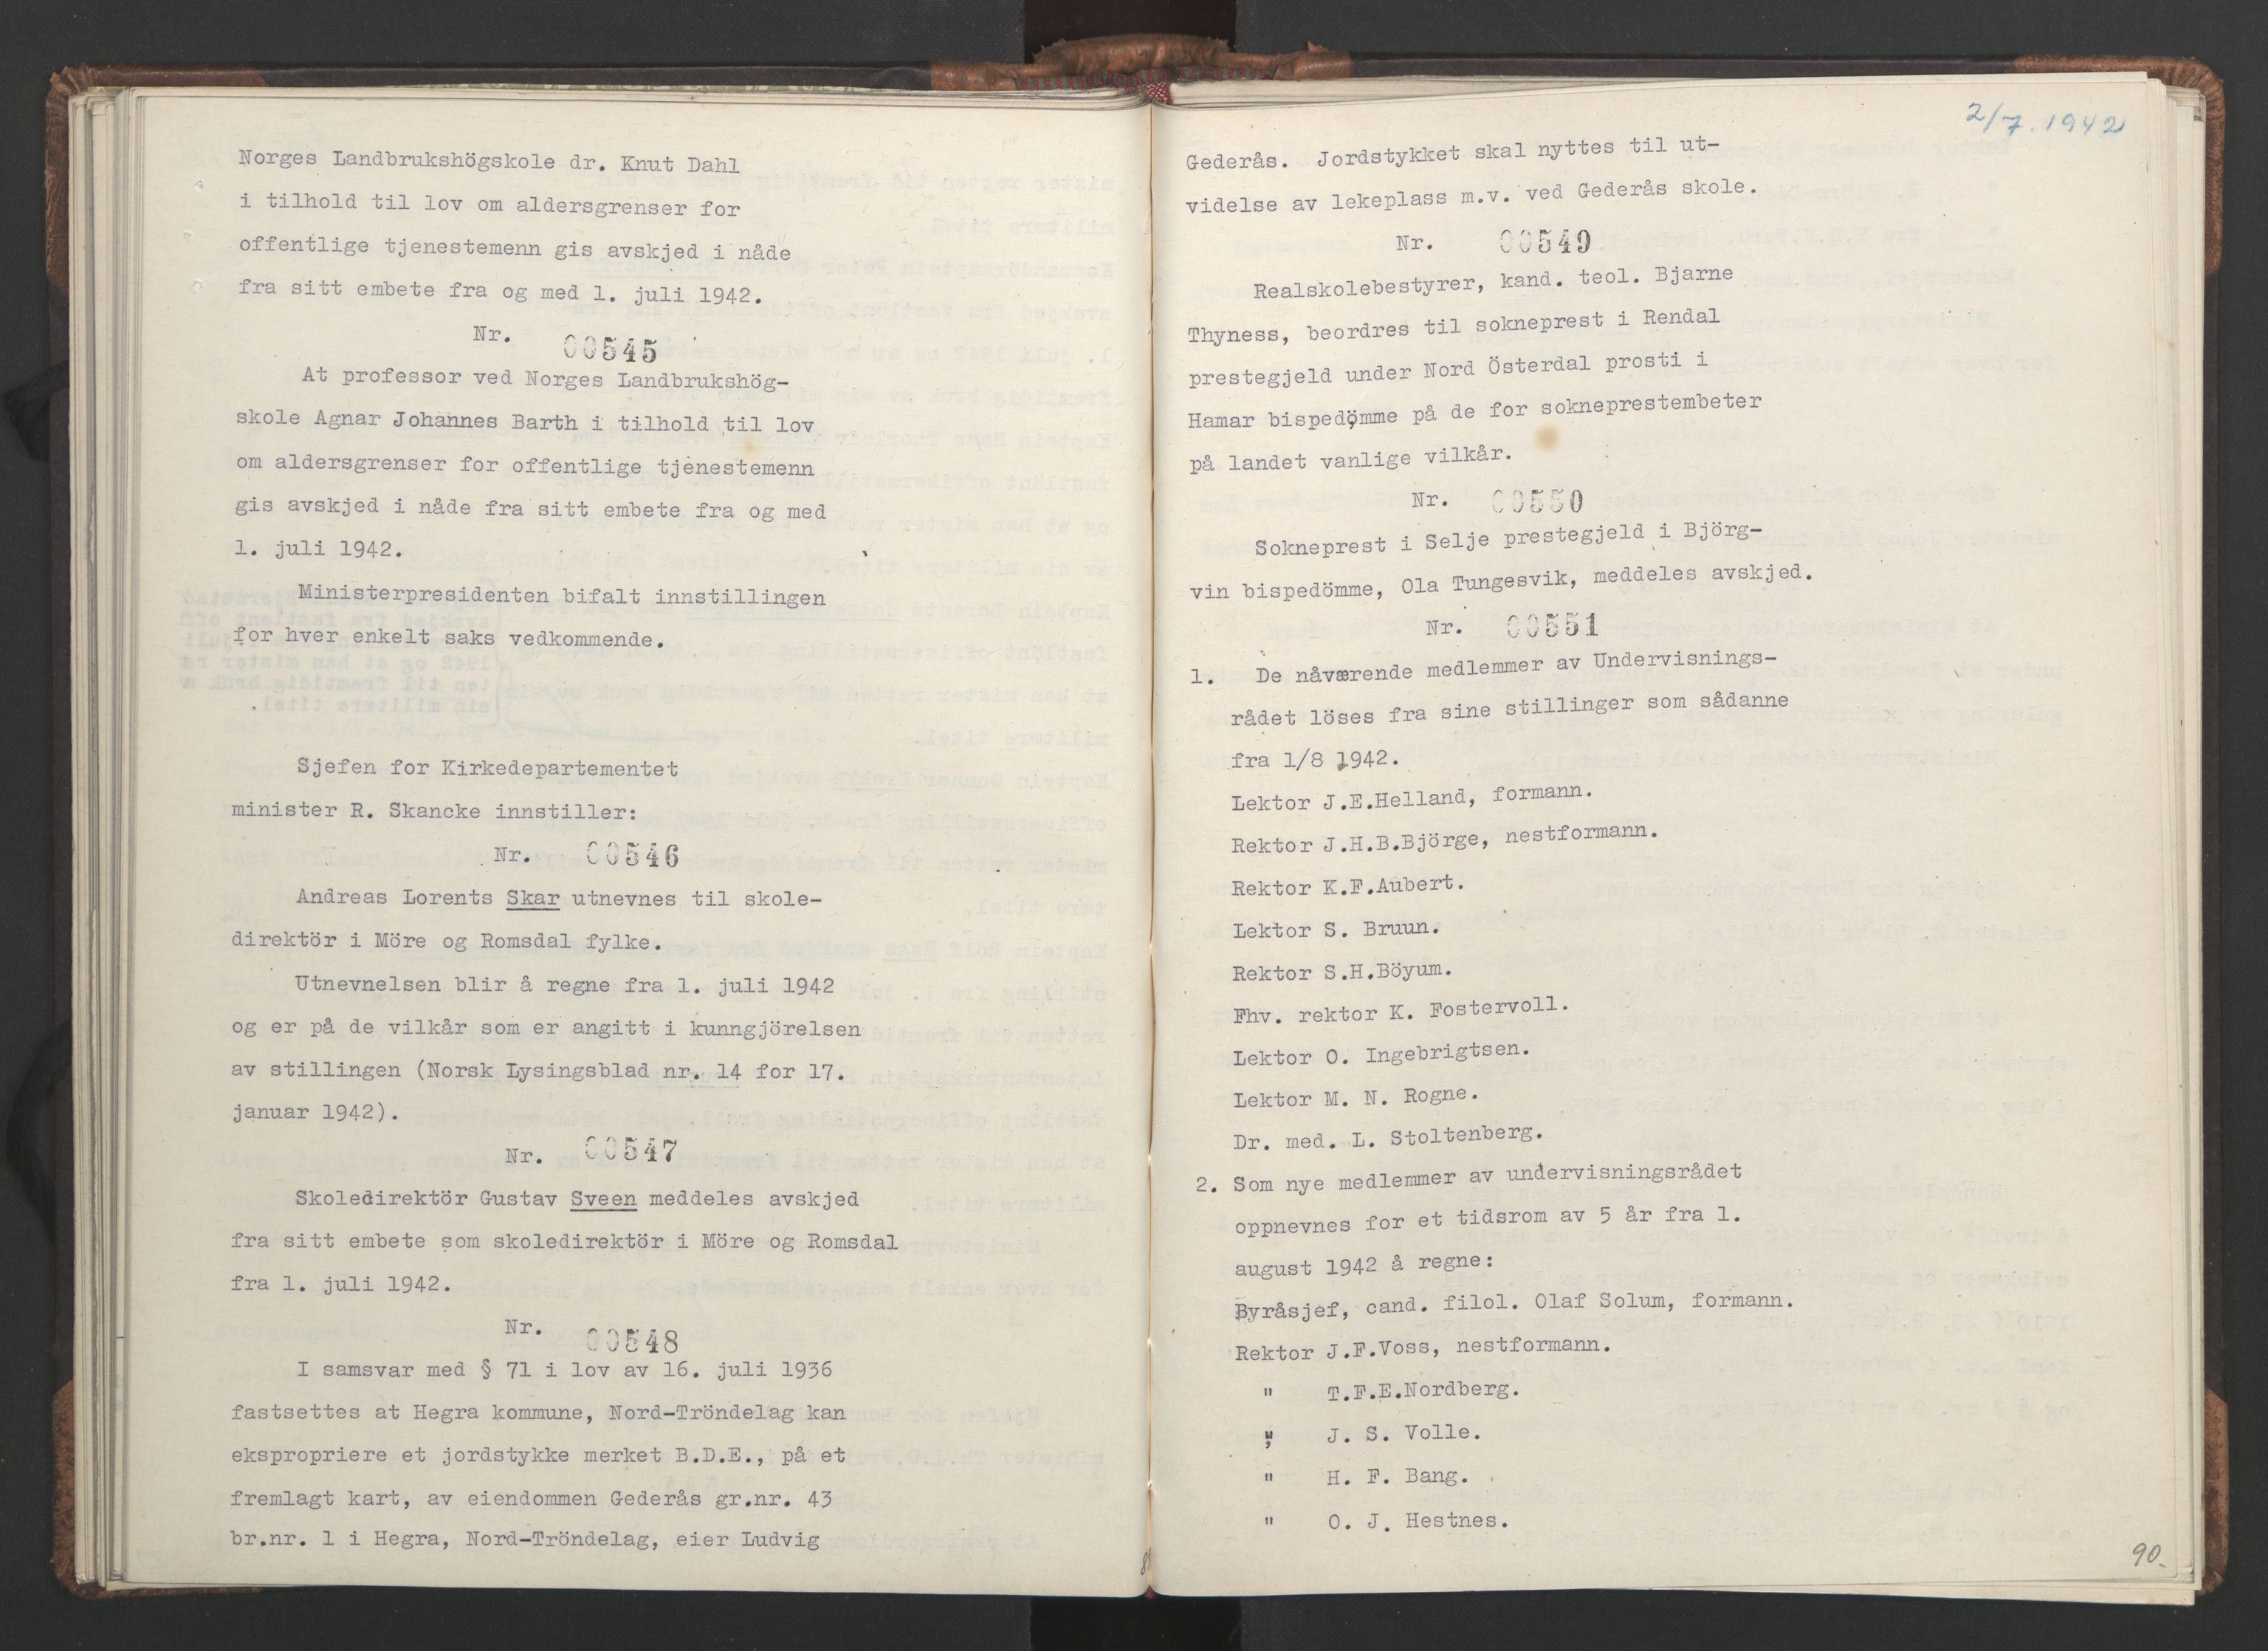 Norges Landbrukshögskole dr. Knut Dahl
i tilhold til lov om aldersgrenser for
offentlige tjenestemenn gis avskjed i nåde
fra sitt embete fra og med 1. juli 1942.
Nr. 00545
At professor ved Norges Landbrukshög-
skole Agnar Johannes Barth i tilhold til lov
om aldersgrenser for offentlige tjenestemenn
gis avskjed i nåde fra sitt embete fra og med
1. juli 1942.
Ministerpresidenten bifalt innstillingen
for hver enkelt saks vedkommende.
Sjefen for Kirkedepartementet
minister R. Skancke innstiller:
Nr. 00546
Andreas Lorents Skar utnevnes til skole-
direktör i Möre og Romsdal fylke.
Utnevnelsen blir å regne fra 1. juli 1942
og er på de vilkår som er angitt i kunngjörelsen
av stillingen (Norsk Lysingsblad nr. 14 for 17.
januar 1942).
Nr. 00547
Skoledirektör Gustav Sveen meddeles avskjed
fra sitt embete som skoledirektör i Möre og Romsdal
fra 1. juli 1942.
Nr. 00548
I samsvar med § 71 i lov av 16. juli 1936
fastsettes at Hegra kommune, Nord-Tröndelag kan
ekspropriere et jordstykke merket B.D.E., på et
fremlagt kart, av eiendommen Gederås gr.nr. 43
br.nr. 1 i Hegra, Nord-Tröndelag, eier Ludvig
2/7.1942
Gederås. Jordstykket skal nyttes til ut-
videlse av lekeplass m.v. ved Gederås skole.
Nr. 00549
Realskolebestyrer, kand. teol. Bjarne
Thyness, beordres til sokneprest i Rendal
prestegjeld under Nord Österdal prosti i
Hamar bispedömme på de for sokneprestembeter
på landet vanlige vilkår.
Nr. 00550
Sokneprest i Selje prestegjeld i Björg-
vin bispedömme, Ola Tungesvik, meddeles avskjed.
Nr. 00551
1. De nåværende medlemmer av Undervisnings-
rådet löses fra sine stillinger som sådanne
fra 1/8 1942.
Lektor J.E.Helland, formann.
Rektor J.H.B.Björge, nestformann.
Rektor K.F.Aubert.
Lektor S. Bruun.
Rektor S.H.Böyum.
Fhv. rektor K. Fostervoll.
Lektor O. Ingebrigtsen.
Lektor M. N. Rogne.
Dr. med. L. Stoltenberg.
2. Som nye medlemmer av undervisningsrådet
oppnevnes for et tidsrom av 5 år fra 1.
august 1942 å regne:
Byråsjef, cand. filol. Olaf Solum, formann.
Rektor J.F.Voss, nestformann.
" T.F.E.Nordberg.
" J. S. Volle.
" H. F. Bang.
" O. J. Hestnes.
90.